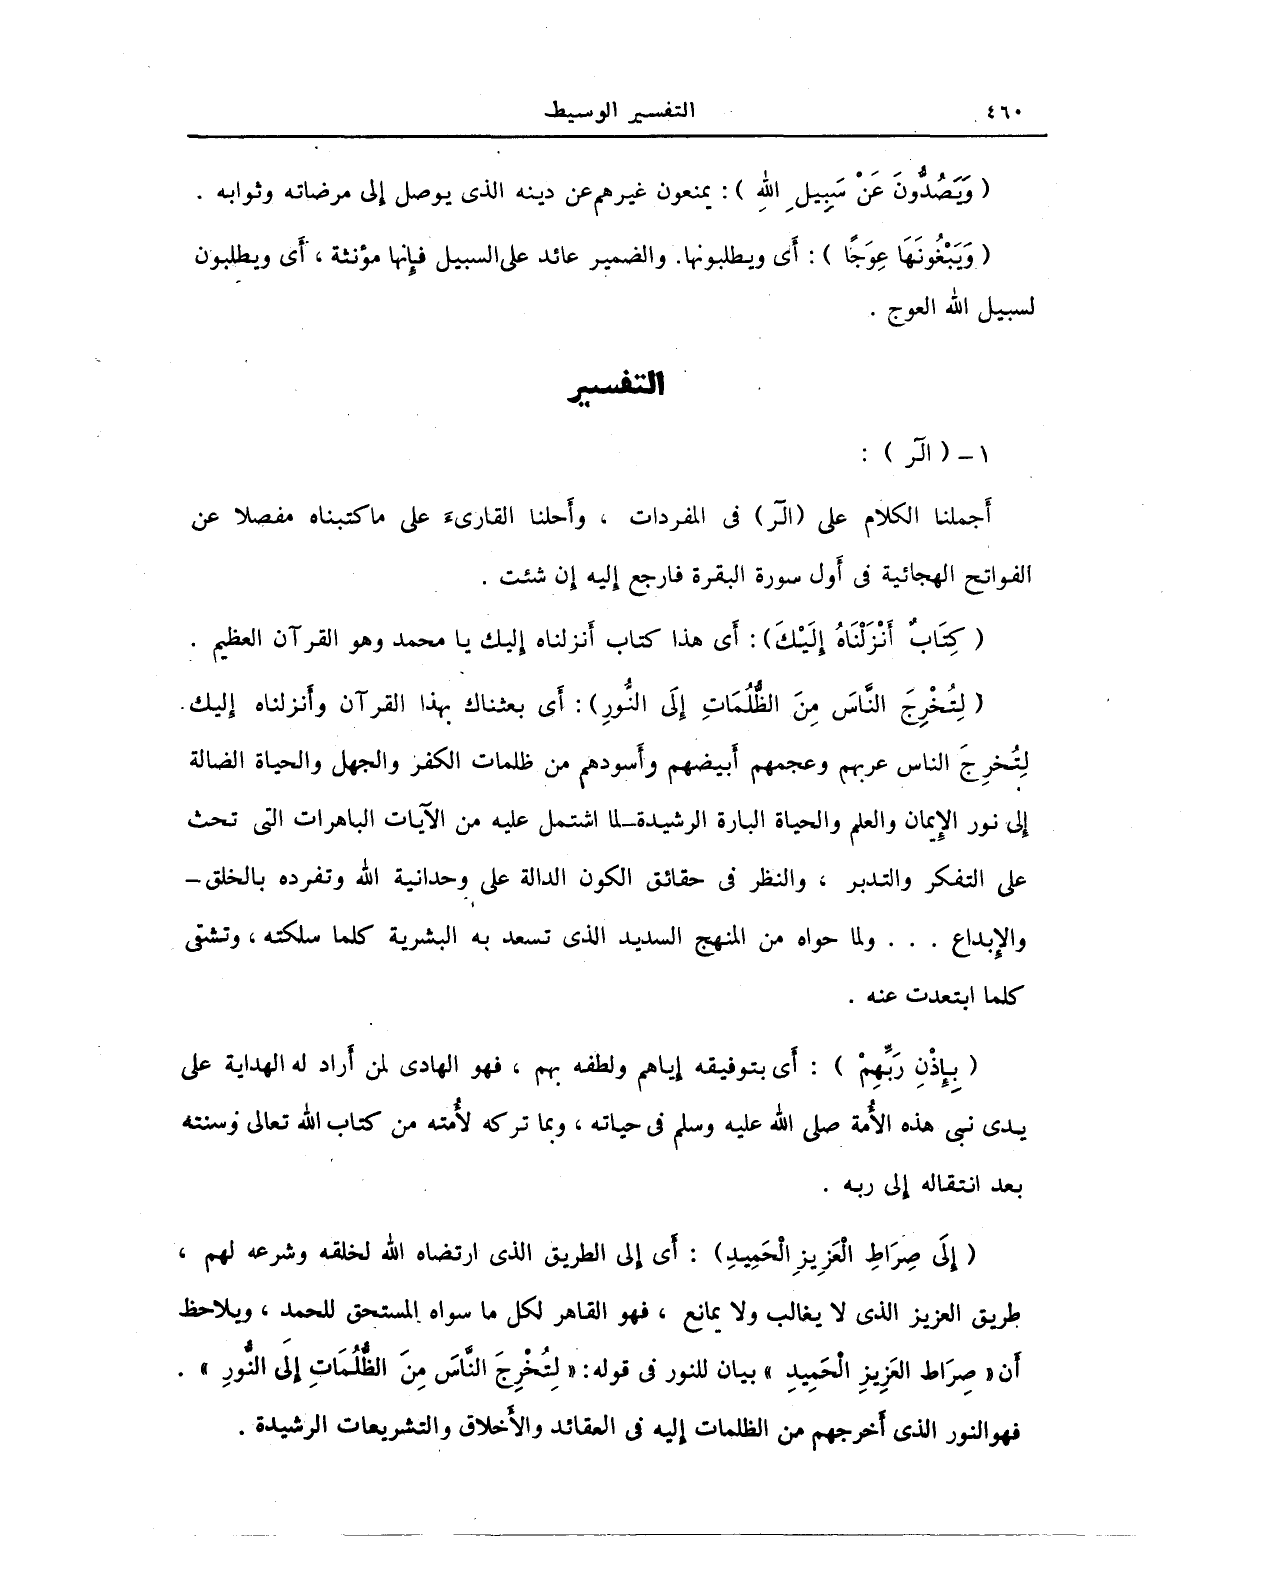 ٤٦٠ التفسير الوسيط
( وَيَصُدُّونَ عَنْ سَبِيلِ اللهِ ) : يمنعون غيرهم عن دينه الذى يوصل إلى مرضاته وثوابه .
( وَيَبْغُونَهَا عِوَجًا ) : أى ويطلبونها. والضمير عائد على السبيل فإنها مؤنثة ، أى ويطلبون
لسبيل الله العوج .
التفسير
١ – ( الٓر ) :
أجملنا الكلام على (الٓر) فى المفردات ، وأحلنا القارىء على ماكتبناه مفصلا عن
الفواتح الهجائية فى أول سورة البقرة فارجع إليه إن شئت .
( كِتَابٌ أَنْزَلْنَاهُ إِلَيْكَ) : أى هذا كتاب أنزلناه إليك يا محمد وهو القرآن العظيم .
( لِتُخْرِجَ النَّاسَ مِنَ الظُّلُمَاتِ إِلَى النُّورِ) : أى بعثناك بهذا القرآن وأنزلناه إليك.
لِتُخرِجَ الناس عربهم وعجمهم أبيضهم وأسودهم من ظلمات الكفر والجهل والحياة الضالة
إلى نور الإيمان والعلم والحياة البارة الرشيدة–لما اشتمل عليه من الآيات الباهرات التى تحث
على التفكر والتدبر ، والنظر فى حقائق الكون الدالة على وحدانية الله وتفرده بالخلق–
والإبداع . . . ولما حواه من المنهج السديد الذى تسعد به البشرية كلما سلكته ، وتشقى
كلما ابتعدت عنه .
( بِإِذْنِ رَبِّهِمْ ) : أى بتوفيقه إياهم ولطفه بهم ، فهو الهادى لمن أراد له الهداية على
يدى نبى هذه الأُمة صلى الله عليه وسلم فى حياته ، وبما تركه لأُمته من كتاب الله تعالى وسنته
بعد انتقاله إلى ربه .
( إِلَى صِرَاطِ الْعَزِيزِ الْحَمِيدِ) : أى إلى الطريق الذى ارتضاه الله لخلقه وشرعه لهم ،
طريق العزيز الذى لا يغالب ولا يمانع ، فهو القاهر لكل ما سواه المستحق للحمد ، ويلاحظ
أن « صِرَاط العَزِيزِ الْحَمِيدِ » بيان للنور فى قوله : « لِتُخْرِجَ النَّاسَ مِنَ الظُّلُمَاتِ إِلَى النُّورِ » .
فهو النور الذى أخرجهم من الظلمات إليه فى العقائد والأخلاق والتشريعات الرشيدة .